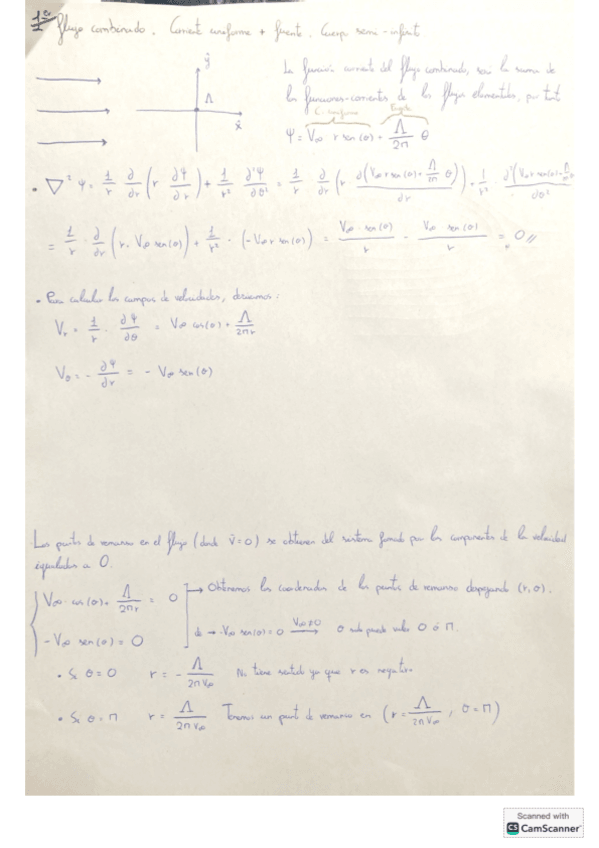 1º/1 Flujo combinado. Corriente uniforme + fuente. Cuerpo semi-infinito
ŷ
Λ
x̂
La función corriente del flujo combinado, será la suma de
las funciones-corrientes de los flujos elementales, por tanto
C. uniforme
Ψ = V∞ r sen(θ) + Λ/2π θ
• ∇² Ψ = 1/r ∂/∂r (r ∂Ψ/∂r) + 1/r² ∂²Ψ/∂θ² = 1/r ∂/∂r (r · ∂(V∞ r sen(θ) + Λ/2π θ)/∂r) + 1/r² · ∂²(V∞ r sen(θ) + Λ/2π θ)/∂θ²
= 1/r · ∂/∂r (r · V∞ sen(θ)) + 1/r² · (-V∞ r sen(θ)) = V∞ · sen(θ)/r - V∞ sen(θ)/r = 0 //
• Para calcular los campos de velocidades, derivamos:
Vr = 1/r · ∂Ψ/∂θ = V∞ cos(θ) + Λ/2πr
Vθ = - ∂Ψ/∂r = - V∞ sen(θ)
Los puntos de remanso en el flujo (donde v̄=0) se obtienen del sistema formado por las componentes de la velocidad
igualadas a 0.
V∞ · cos(θ) + Λ/2πr = 0 → Obtenemos las coordenadas de los puntos de remanso despejando (r, θ).
-V∞ sen(θ) = 0 de → -V∞ sen(θ) = 0 V∞≠0 → θ solo puede valer 0 ó π.
• Si θ = 0 r = - Λ/2πV∞ No tiene sentido ya que r es negativo.
• Si θ = π r = Λ/2πV∞ Tenemos un punto de remanso en (r = Λ/2πV∞, θ = π)
Scanned with
CS CamScanner